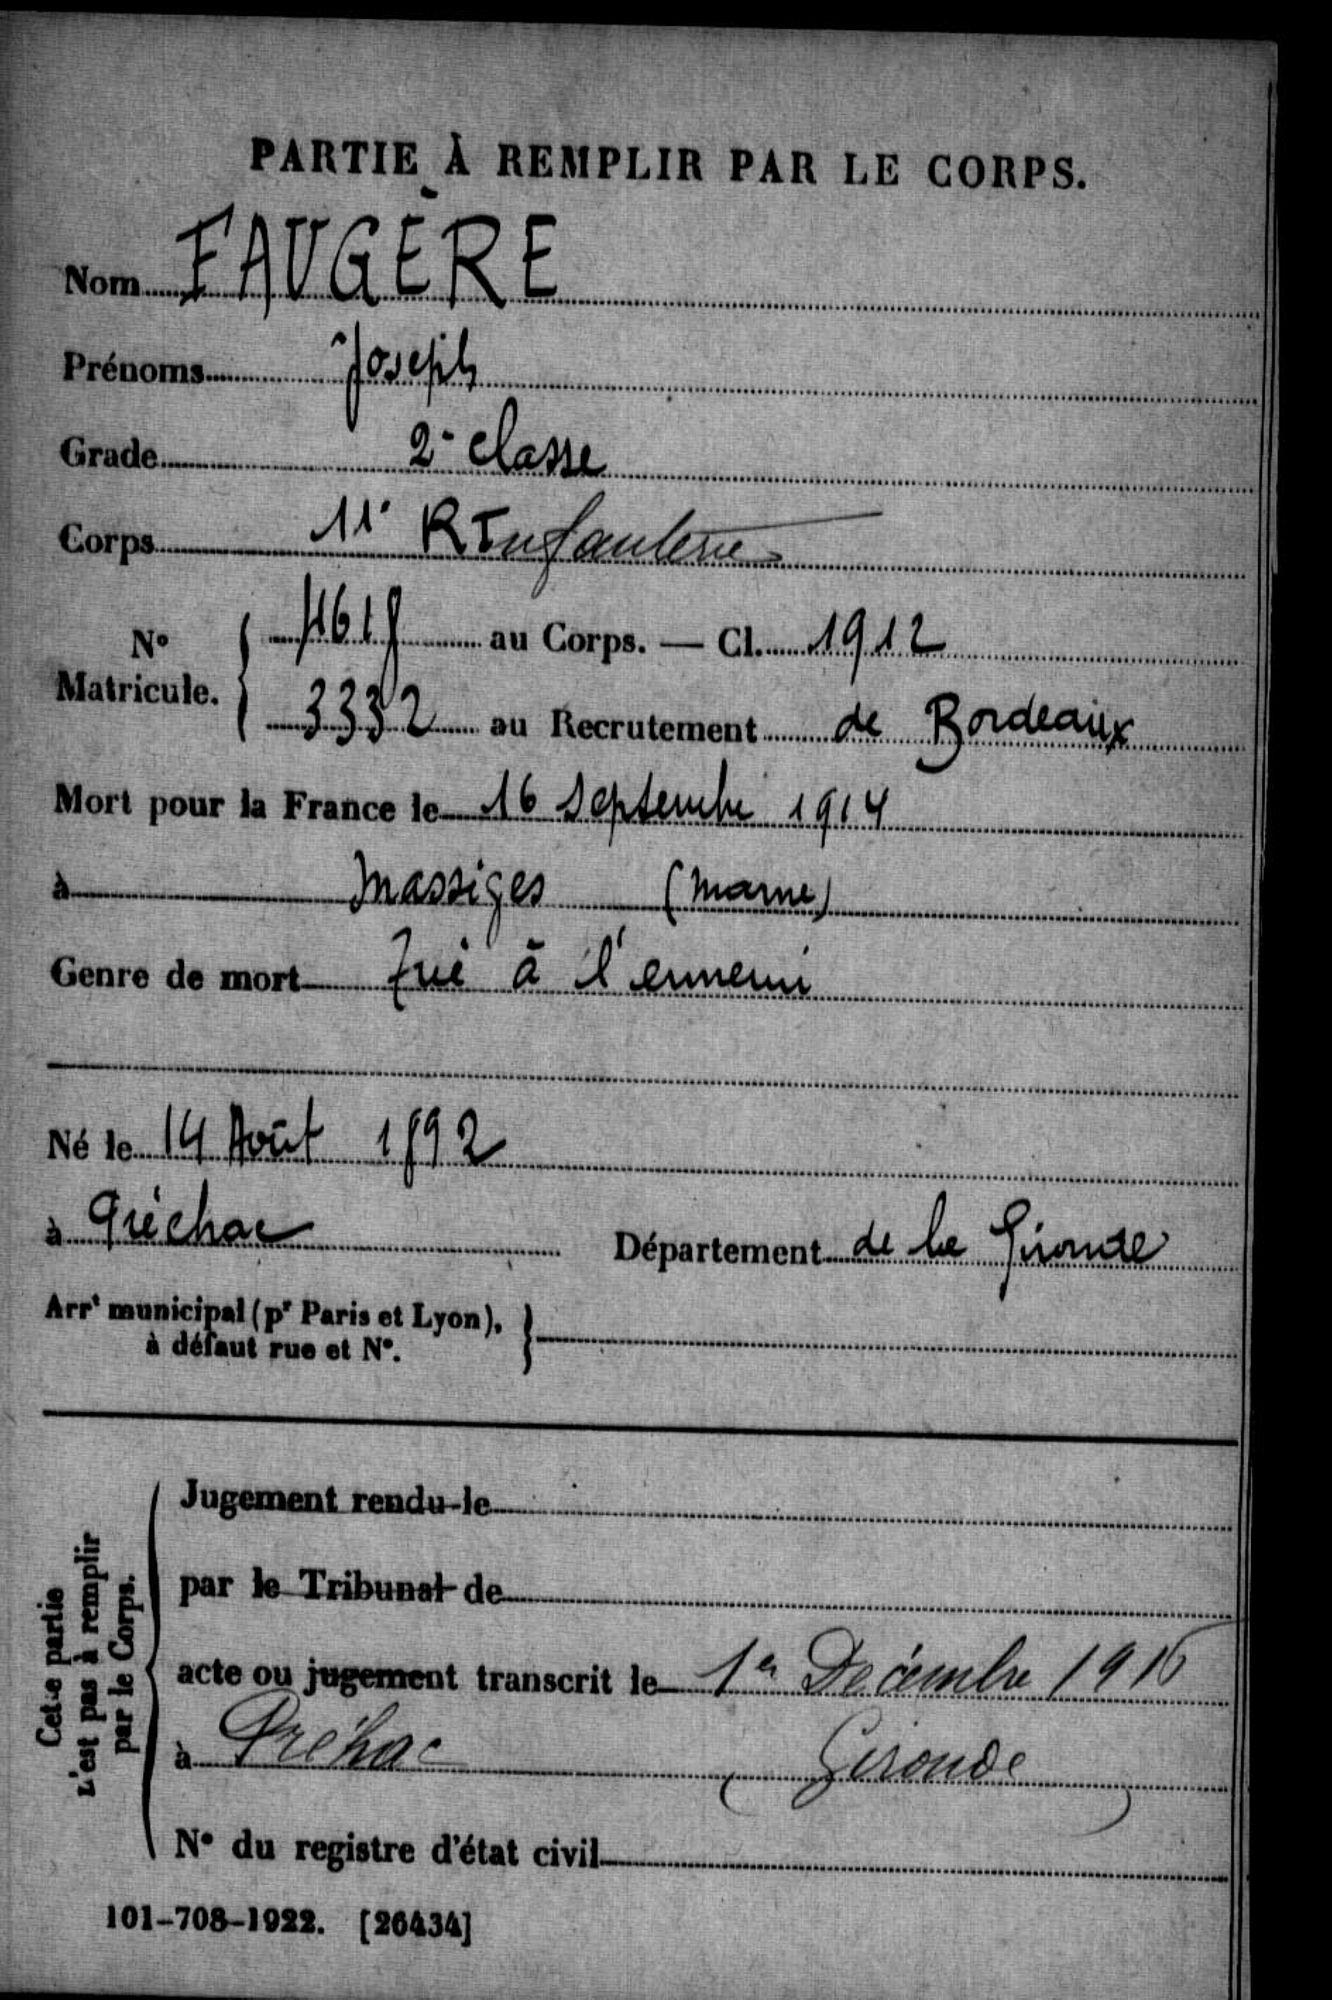 PARTIE À REMPLIR PAR LE CORPS.
Nom FAUGÈRE
Prénoms Joseph
Grade 2e classe
Corps 11e R Infanterie
N° Matricule. { 4618 au Corps. — Cl. 1912
3332 au Recrutement de Bordeaux
Mort pour la France le 16 Septembre 1914
à Massiges (Marne)
Genre de mort Tué à l'ennemi
Né le 14 Août 1892
à Préchac Département de la Gironde
Arrt municipal (pr Paris et Lyon), à défaut rue et N°.
Cette partie n'est pas à remplir par le Corps.
Jugement rendu le
par le Tribunal de
acte ou jugement transcrit le 1er Décembre 1916
à Préhac (Gironde)
N° du registre d'état civil
101-708-1922. [26434]